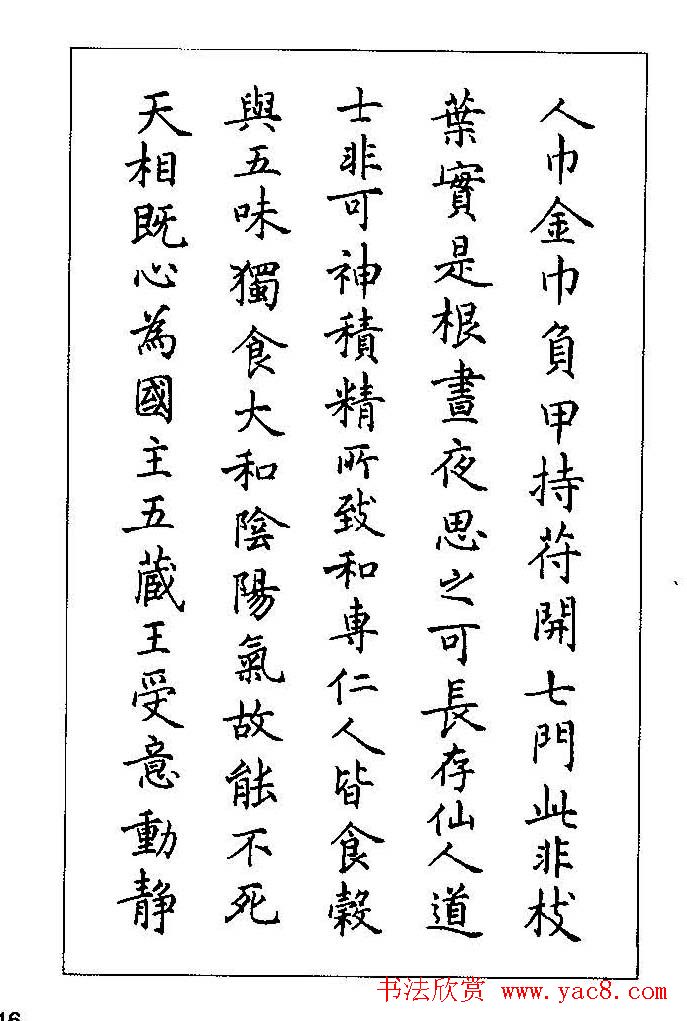 人巾金巾負甲持苻開七門此非枝
葉實是根晝夜思之可長存仙人道
士非可神積精所致和專仁人皆食穀
與五味獨食大和陰陽氣故能不死
天相既心為國主五蔵王受意動静
书法欣赏 www.yac8.com
16